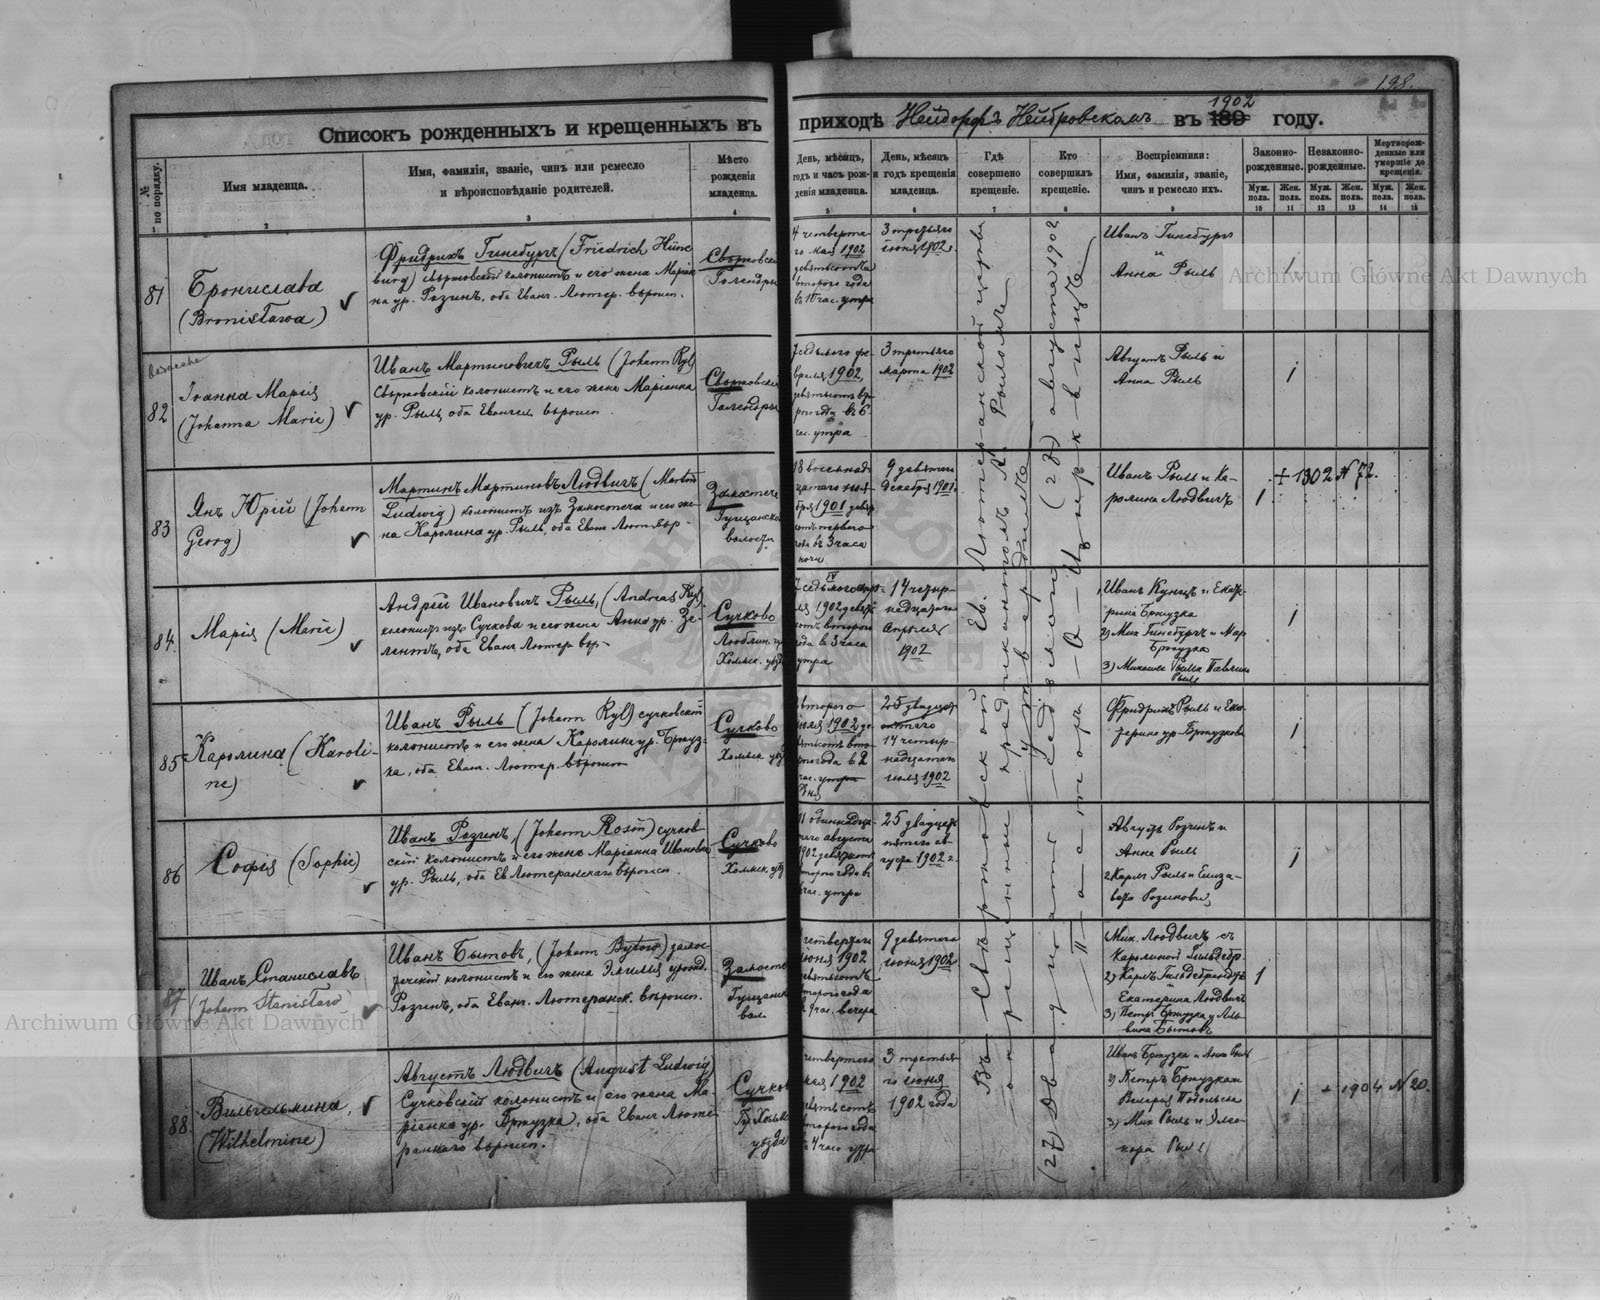 198.
Списокъ рожденныхъ и крещенныхъ въ приходѣ Нейдорфъ Нейбровскомъ въ 189 1902 году.
№ по порядку.
Имя младенца.
Имя, фамилія, званіе, чинъ или ремесло
и вѣроисповѣданіе родителей.
Мѣсто
рожденія
младенца.
День, мѣсяцъ,
годъ и часъ рож-
денія младенца.
День, мѣсяцъ
и годъ крещенія
младенца.
Гдѣ
совершено
крещеніе.
Кто
совершилъ
крещеніе.
Воспріемники:
Имя, фамилія, званіе,
чинъ и ремесло ихъ.
Законно-
рожденные.
Незаконно-
рожденные.
Мертворож-
денные или
умершіе до
крещенія.
Муж. пола.
Жен. пола.
Муж. пола.
Жен. пола.
Муж. пола.
Жен. пола.
1 2 3 4 5 6 7 8 9 10 11 12 13 14 15
81
Бронислава
(Bronisława)
Фридрихъ Гинсбургъ (Friedrich Hüns-
burg) свержовскій колонистъ и его жена Маріан-
на ур. Розинъ, оба Еванг. Лютер. вѣроисп.
Свержовски
Голендры
4 четверта-
го мая 1902
девятьсотъ
второго года
въ 10 час. утра
3 третьяго
іюня 1902 г.
Иванъ Гинсбургъ
и
Анна Рыль
1
82
Іоанна Марія
(Johanna Marie)
Иванъ Мартиновичъ Рыль (Johann Ryl)
Свержовскій колонистъ и его жена Маріанна
ур. Рыль, оба Евангел. вѣроисп.
Свержовски
Голендры
7 седьмого фе-
враля 1902
часъ утра
3 третьяго
марта 1902
Августъ Рыль и
Анна Рыль
1
83
Янъ Юрій (Johann
Georg)
Мартинъ Мартиновъ Людвигъ (Martin
Ludwig) колонистъ изъ Замостеча и его же-
на Каролина ур. Рыль, оба Еванг. Лют. вѣр.
Замостече
волости
18 восемнад-
цатаго ноя-
бря 1901 девять-
сотъ перваго
года въ 3 часа
ночи
9 девятаго
декабря 1901.
Иванъ Рыль и Ка-
ролина Людвигъ
1
+ 1902 N 72.
84
Марія (Marie)
Андрей Ивановичъ Рыль, (Andreas Ryl)
колонистъ изъ Сучкова и его жена Анна ур. Зе-
лентъ, оба Еванг. Лютер. вѣр.
Сучково
Люблин. губ.
Холмск. уѣзд.
7 седьмого апрѣ-
ля 1902 девять-
сотъ второго
года въ 3 часа
утра
14 четыр-
надцатаго
Апрѣля
1902
Иванъ Кунцъ и Екате-
рина Бжузка
2) Мих. Гинсбургъ и Мар.
Бжузка
3) Михаилъ Рыль и Павлина
Рыль
1
85
Каролина (Karoli-
ne)
Иванъ Рыль (Johann Ryl) сучковскій
колонистъ и его жена Каролина ур. Бжуз-
ка, оба Еванг. Лютер. вѣроисп.
Сучково
Холмск. уѣзд.
второго
іюля 1902 де-
вятьсотъ вто-
рого года въ 2
час. утра
дня
25 двадцать
пятаго
14 четыр-
надцатаго
іюля 1902
Фридрихъ Рыль и Ека-
терина ур. Бжузкова
1
86
Софія (Sophie)
Иванъ Розинъ (Johann Rosin) сучков-
скій колонистъ и его жена Маріанна Ивановна
ур. Рыль, оба Ев. Лютеранскаго вѣроисп.
Сучково
Холмск. уѣзд.
11 одиннадца-
таго августа
1902 девятьсотъ
второго года въ
час. утра
25 двадцать
пятаго ав-
густа 1902 г.
Августъ Розинъ и
Анна Рыль
2 Карлъ Рыль и Елиза-
вета Розинова
1
87
Иванъ Станиславъ
(Johann Stanisław)
Иванъ Бытовъ, (Johann Bytow) замос-
течскій колонистъ и его жена Эмилія урожд.
Розинъ, оба Еванг. Лютеранск. вѣроисп.
Замосте
вол.
четвертаго
іюня 1902
девятьсотъ
второго года
въ 9 час. вечера
9 девятаго
іюня 1902
Мих. Людвигъ съ
Каролиной Гильдебр.
2) Карлъ Гильдебрандтъ
и
Екатерина Людвигъ
3) Петръ Бжузка и Аль-
вина Бытовъ
1
88
Вильгельмина,
(Wilhelmine)
Августъ Людвигъ (August Ludwig)
Сучковскій колонистъ и его жена Ма-
ріанна ур. Бжузка, оба Еванг. Люте-
ранскаго вѣроисп.
Сучково
уѣзда
четвертаго
мая 1902
девятьсотъ
второго года
въ 4 часа утра
3 третья-
го іюня
1902 года
Иванъ Бжузка и Анна Рыль
2) Петръ Бжузка и
Валерія Подольска
3) Мих. Рыль и Элео-
нора Рыль
1
+ 1904 N 20.
Въ Свержовской Ев. Лютеранской церкви
окрещенные предикантомъ А. Рылломъ
утвердилъ
(27) Двадцать седьмого (27) августа 1902
Пасторъ О. Цирквицъ
Archiwum Główne Akt Dawnych
Archiwum Główne Akt Dawnych